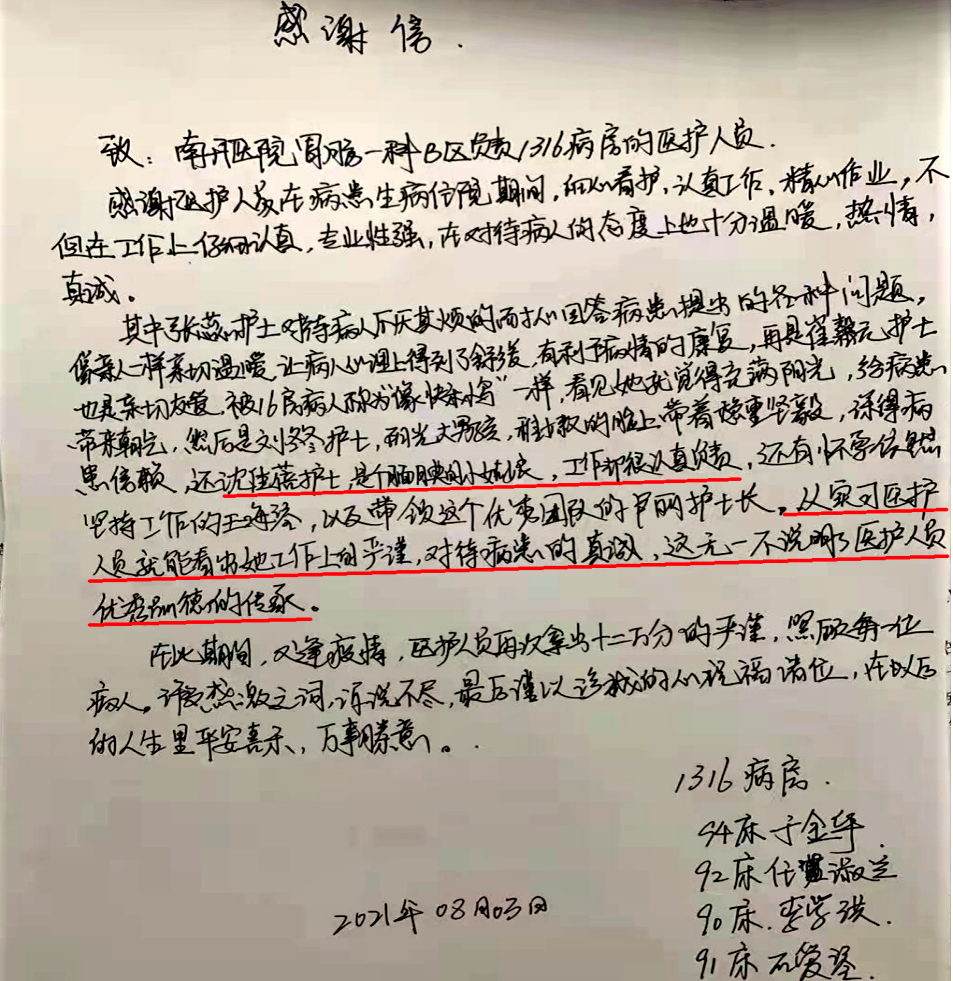 感谢信.
致：南开医院胃肠一科B区负责1316病房的医护人员.
感谢医护人员在病患生病住院期间，细心看护，认真工作，精心作业，不
但在工作上仔细认真，专业性强，在对待病人的态度上也十分温暖，热情，
真诚。
其中张蕊护士对待病人不厌其烦的耐心回答病患提出的各种问题，
像亲人一样亲切温暖，让病人心理上得到了舒缓，有利于病情的康复，再是崔 护士
也是亲切友爱，被16房病人称为像"快乐小鸟"一样，看见她就觉得充满阳光，给病患
带来朝气，然后是刘 护士，阳光大男孩，稚嫩的脸上带着稳重坚毅，深得病
患信赖，还沈佳蓓护士，是个腼腆的小姑娘，工作却很认真负责，还有怀孕依然
坚持工作的王海 ，以及带领这个优秀团队的尹丽护士长，从实习医护
人员就能看出她工作上的严谨，对待病患的真诚，这无一不说明了医护人员
优秀品德的传承。
在此期间，又逢疫情，医护人员再次拿出十二万分的严谨，照顾每一位
病人。许多感激之词，诉说不尽，最后谨以诚挚的心祝福诸位，在以后
的人生里平安喜乐，万事胜意。
1316病房.
94床于金华
92床任 淑兰
90床.李学琪.
91床石爱
2021年08月03日